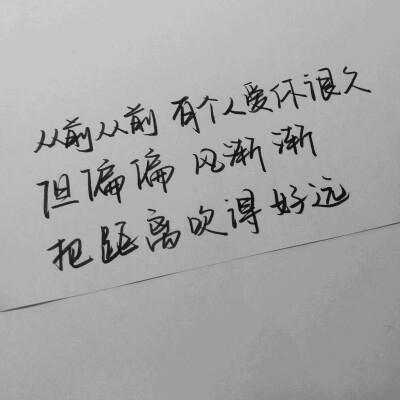 从前从前 有个人爱你很久
但偏偏 风渐渐
把距离吹得好远